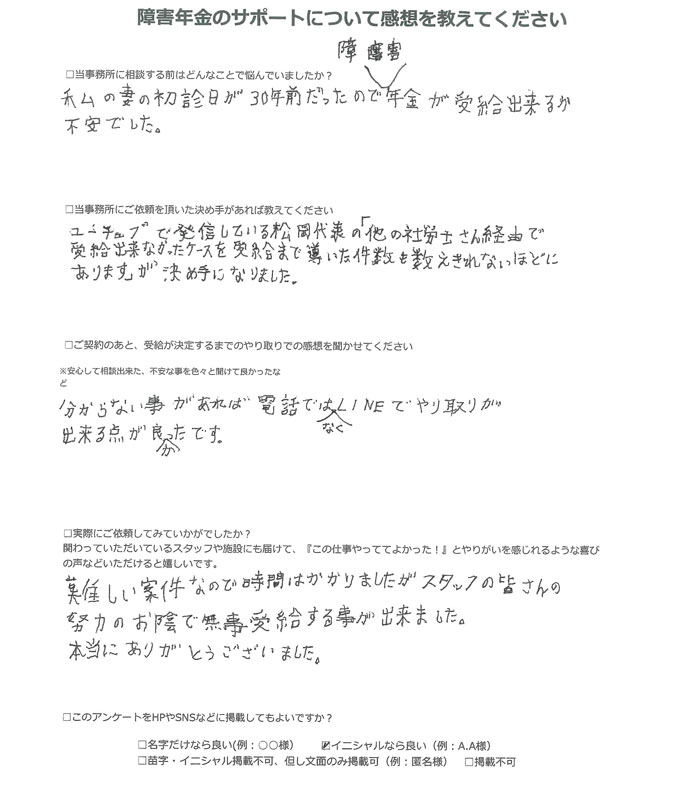 障害年金のサポートについて感想を教えてください
障害
□当事務所に相談する前はどんなことで悩んでいましたか？
私の妻の初診日が30年前だったので年金が受給出来るか
不安でした。
□当事務所にご依頼を頂いた決め手があれば教えてください
ユーチュブで発信している松岡代表の「他の社労士さん経由で
受給出来なかったケースを受給まで導いた件数も数えきれないほどに
あります」が決め手になりました。
□ご契約のあと、受給が決定するまでのやり取りでの感想を聞かせてください
※安心して相談出来た、不安な事を色々と聞けて良かったな
ど
分からない事があれば電話ではLINEでやり取りが
なく
出来る点が良ったです。
か
□実際にご依頼してみていかがでしたか？
関わっていただいているスタッフや施設にも届けて、『この仕事やっててよかった！』とやりがいを感じれるような喜び
の声などいただけると嬉しいです。
難しい案件なので時間はかかりましたがスタッフの皆さんの
努力のお陰で無事受給する事が出来ました。
本当にありがとうございました。
□このアンケートをHPやSNSなどに掲載してもよいですか？
□名字だけなら良い(例：○○様） ☑イニシャルなら良い（例：A.A様）
□苗字・イニシャル掲載不可、但し文面のみ掲載可（例：匿名様） □掲載不可